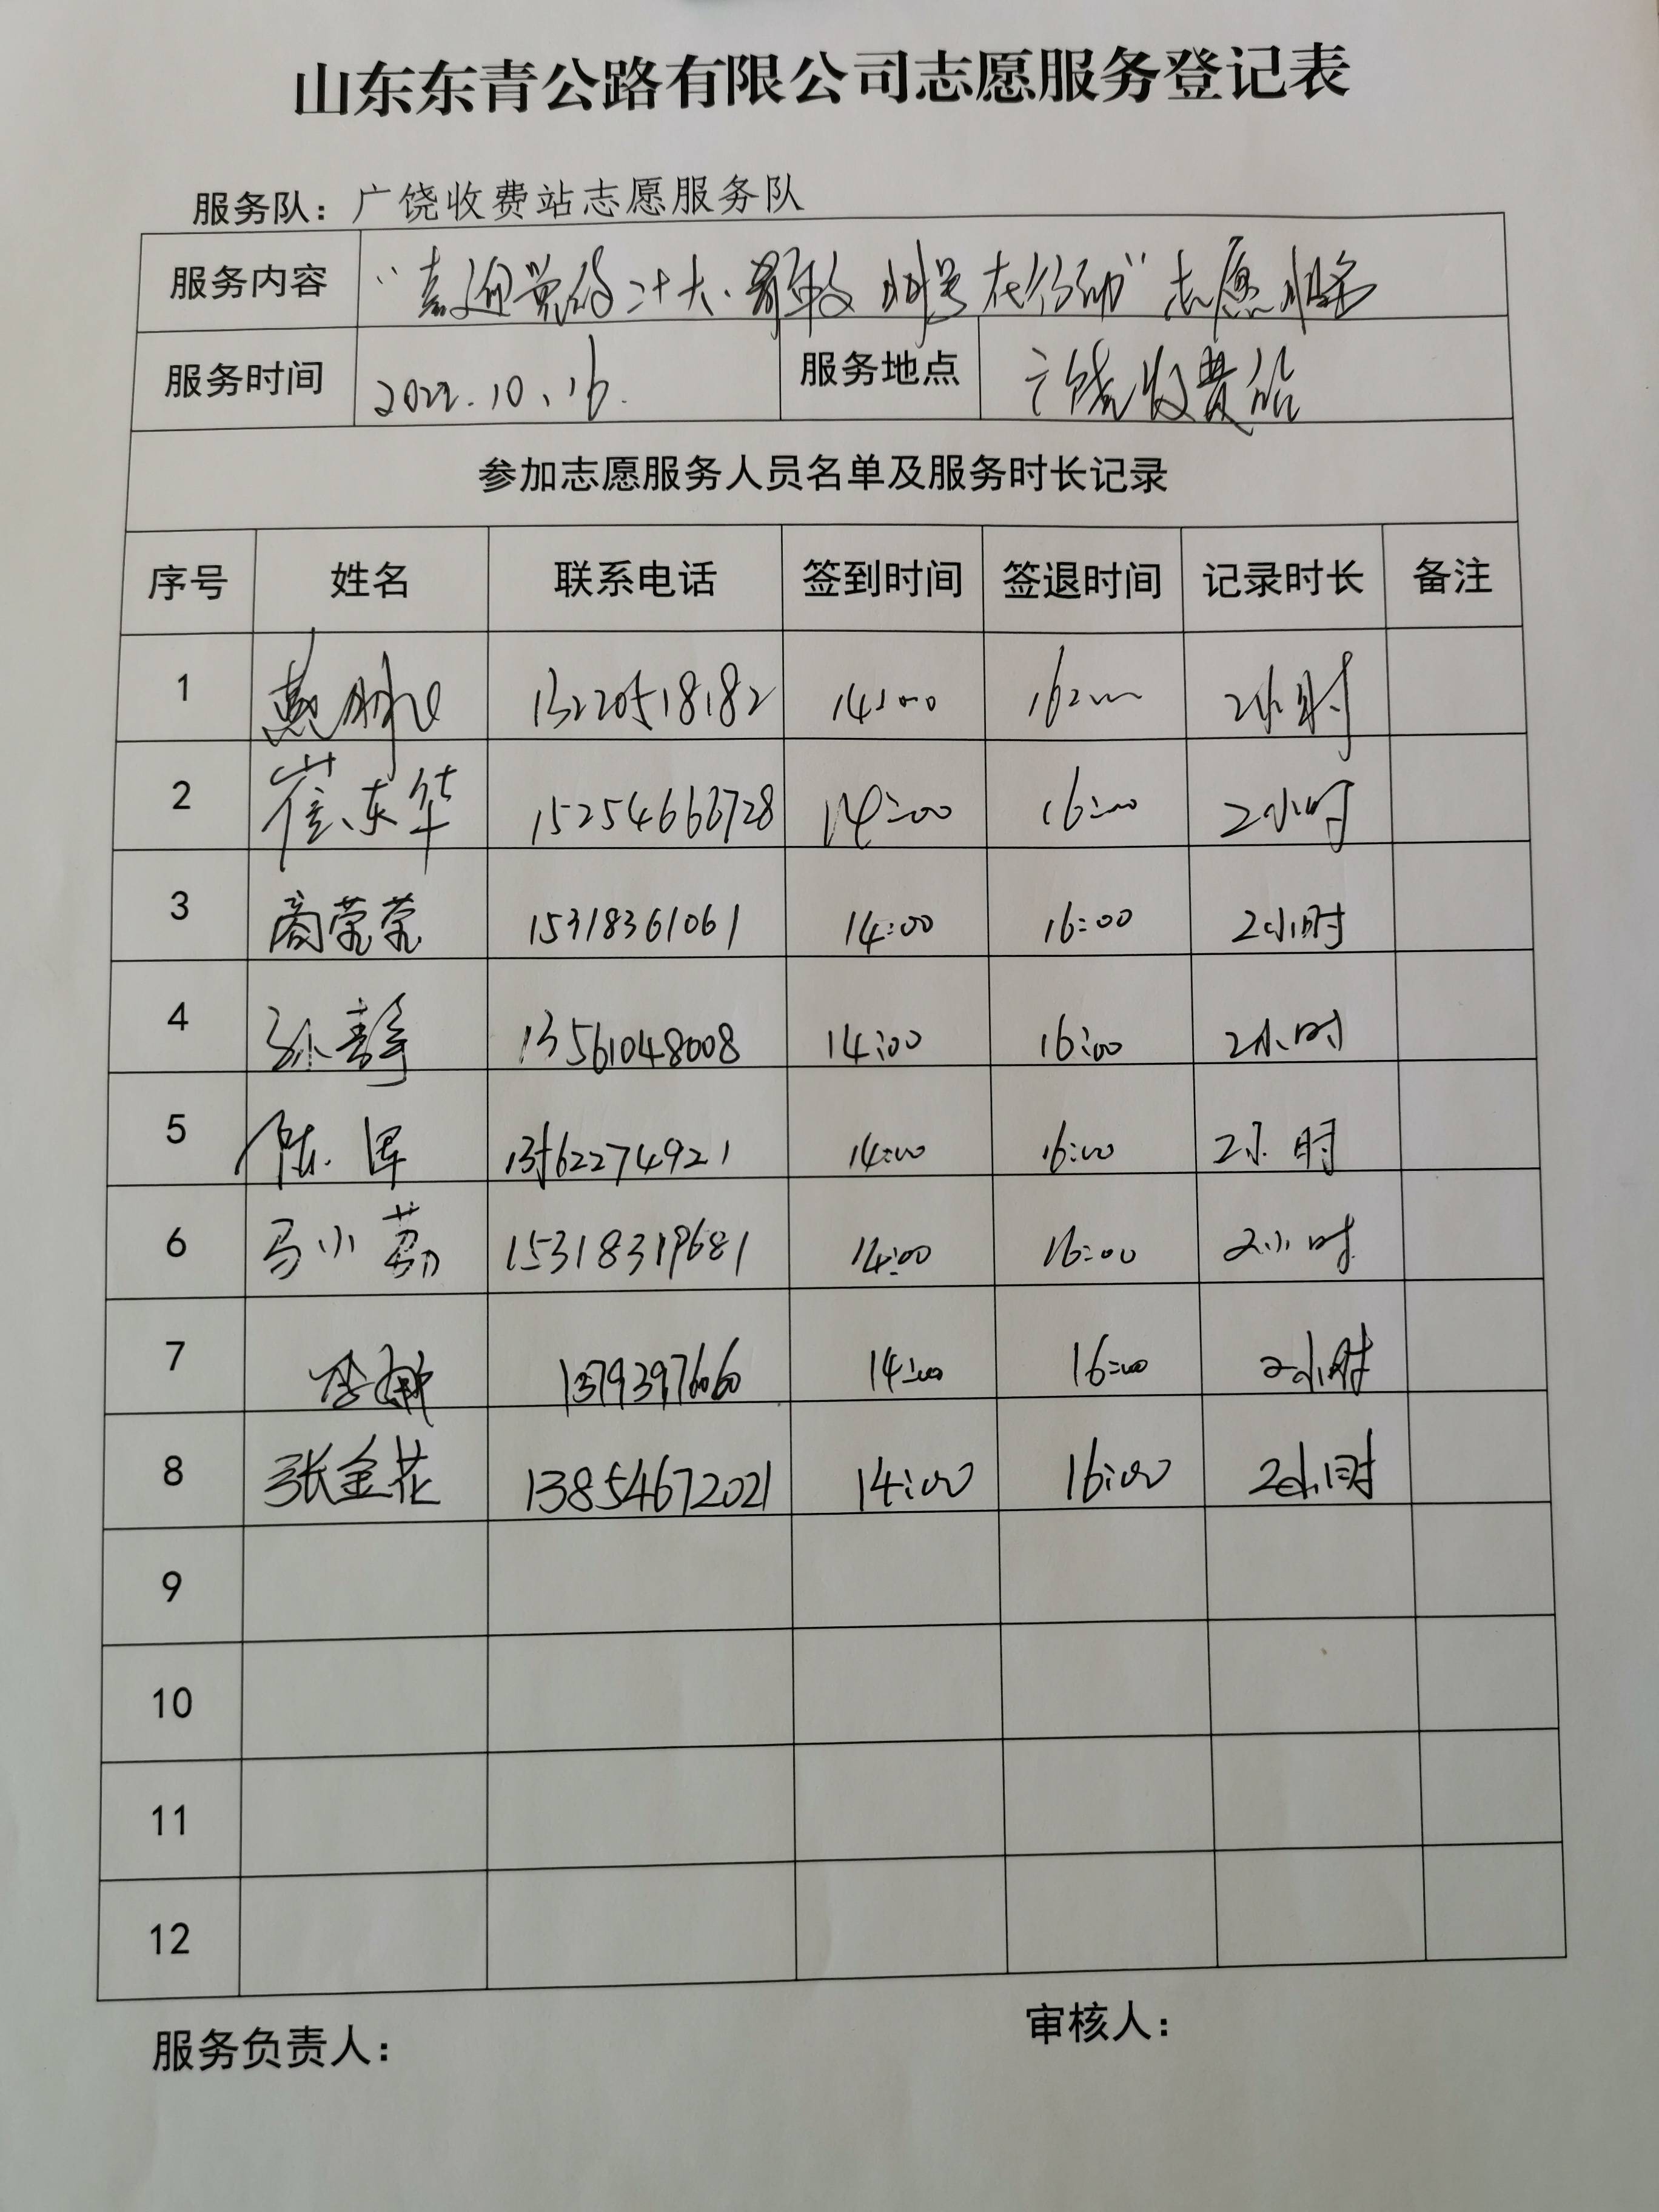 山东东青公路有限公司志愿服务登记表
服务队：广饶收费站志愿服务队
服务内容 “喜迎党的二十大、 在行动”志愿服务
服务时间 2022.10.16. 服务地点 广饶收费站
参加志愿服务人员名单及服务时长记录
序号 姓名 联系电话 签到时间 签退时间 记录时长 备注
1 13220518182 14:00 16:00 2小时
2 崔东华 15254666728 14:00 16:00 2小时
3 商荣荣 15318361061 14:00 16:00 2小时
4 孙静 13561048008 14:00 16:00 2小时
5 陈军 13562274921 14:00 16:00 2小时
6 马小荔 15318319681 14:00 16:00 2小时
7 李 14:00 16:00 2小时
8 张金花 13854672021 14:00 16:00 2小时
9
10
11
12
服务负责人： 审核人：